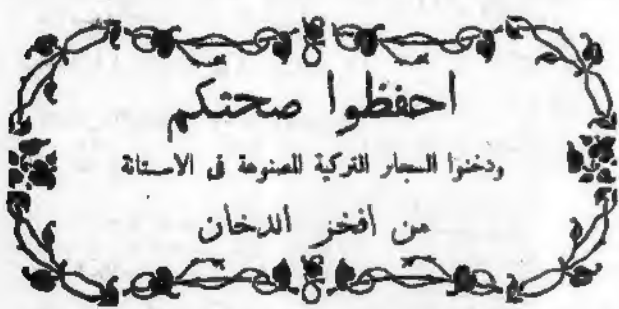 احفظوا صحتكم
ودخنوا السجار التركية المصنوعة في الاستانة
من أفخر الدخان